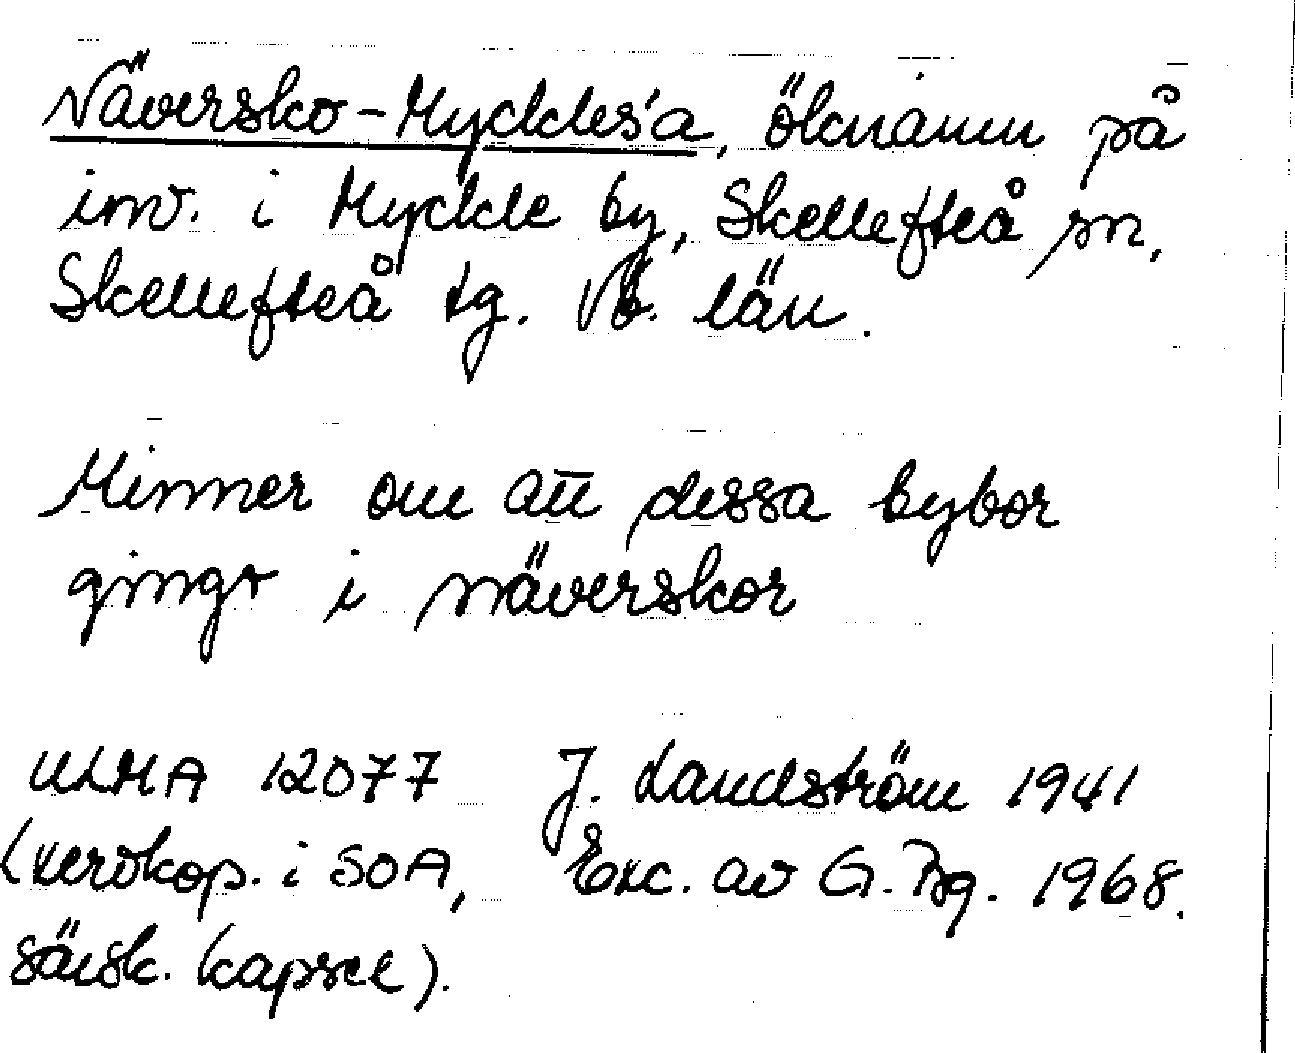 Näversko-Myckles'a, öknamn på
inv. i Myckle by, Skellefteå sn,
Skellefteå tg. Vb. län.
Minner om att dessa bybor
gingo i näverskor
ULMA 12077 J. Landström 1941
(xerokop. i SOA, Exc. av G. Bg. 1968.
särsk. kapsel).